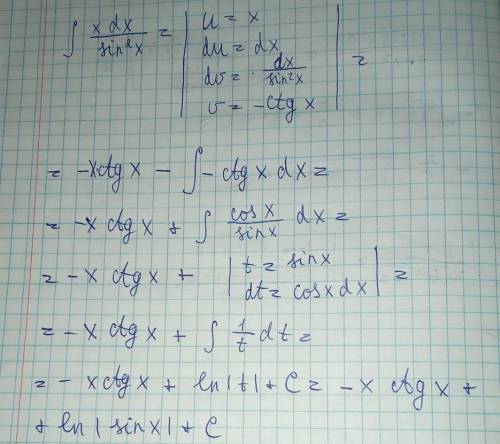 ∫ x dx / sin²x = | u = x
du = dx
dv = dx / sin²x
v = -ctg x | =
= -x·ctg x - ∫ - ctg x dx =
= -x ctg x + ∫ cos x / sin x dx =
= - x ctg x + | t = sin x
dt = cos x dx | =
= - x ctg x + ∫ 1/t dt =
= - x ctg x + ln |t| + C = - x ctg x +
+ ln | sin x | + C